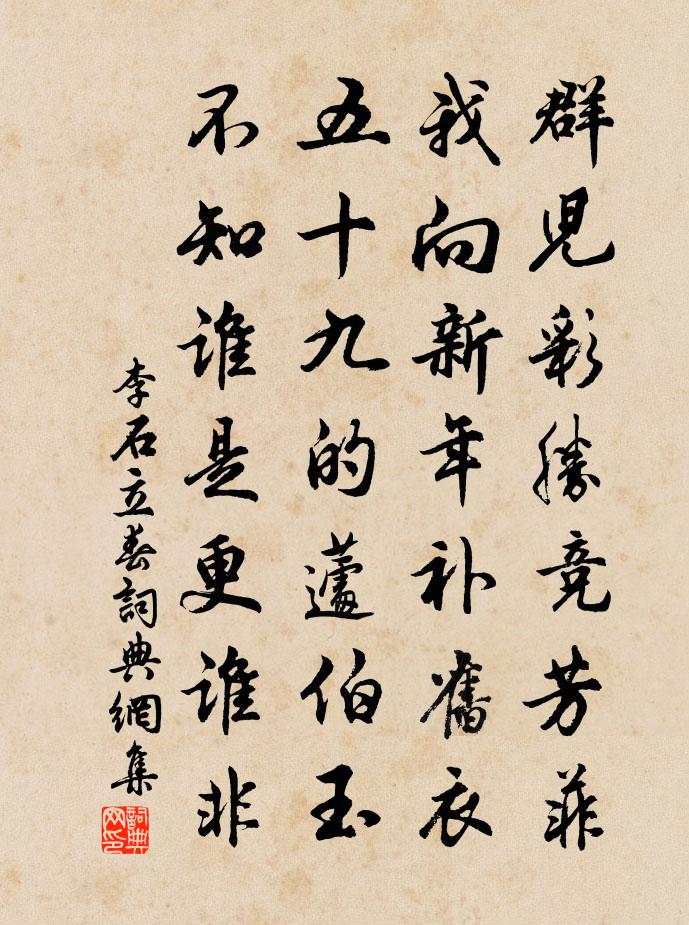 群兒彩勝竞芳菲
我向新年补舊衣
五十九的蘧伯玉
不知誰是更誰非
李石立春詞典網集
詞典网印